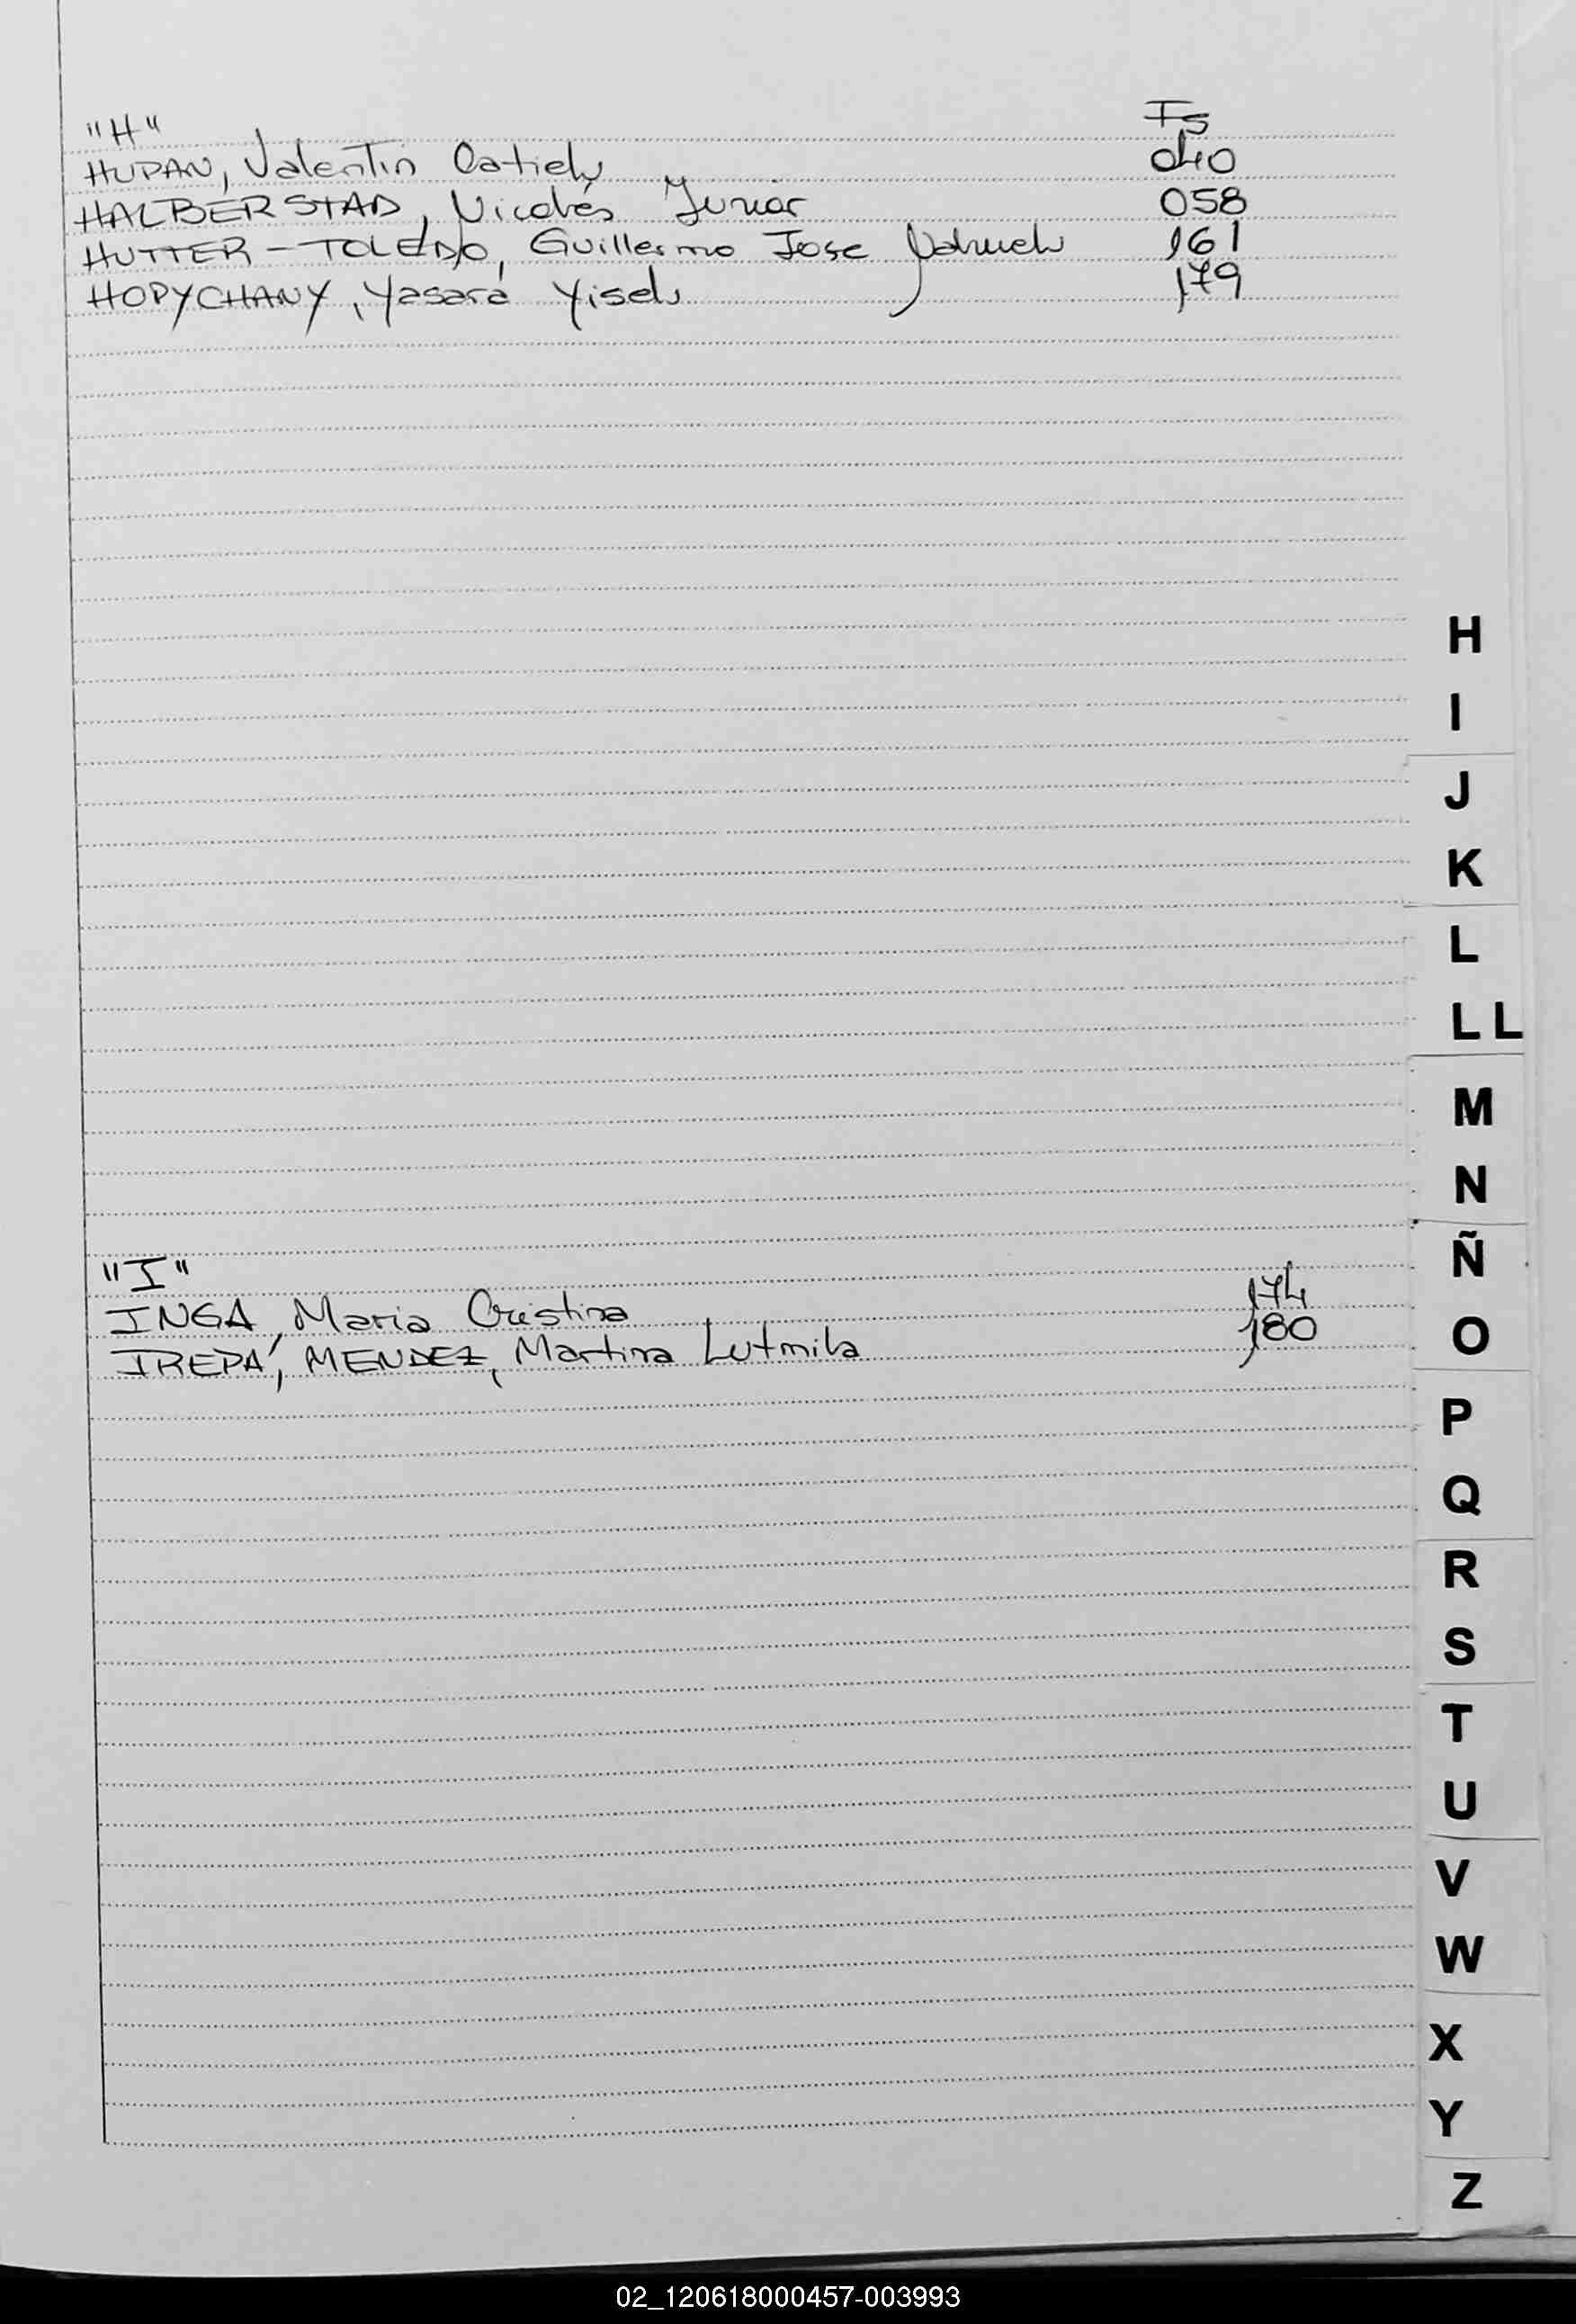 "H" Fs
HUPAN, Valentin Catiel 040
HALBERSTAD, Nicolás Junior 058
HUTTER - TOLEDO, Guillermo Jose Nahuel 161
HOPYCHANY, Yasara Yisel 179
H
I
J
K
L
LL
M
N
"I"
Ñ
INGA, Maria Cristina 174
IREPA, MENDEZ, Martina Lutmila 180
O
P
Q
R
S
T
U
V
W
X
Y
Z
02_120618000457-003993